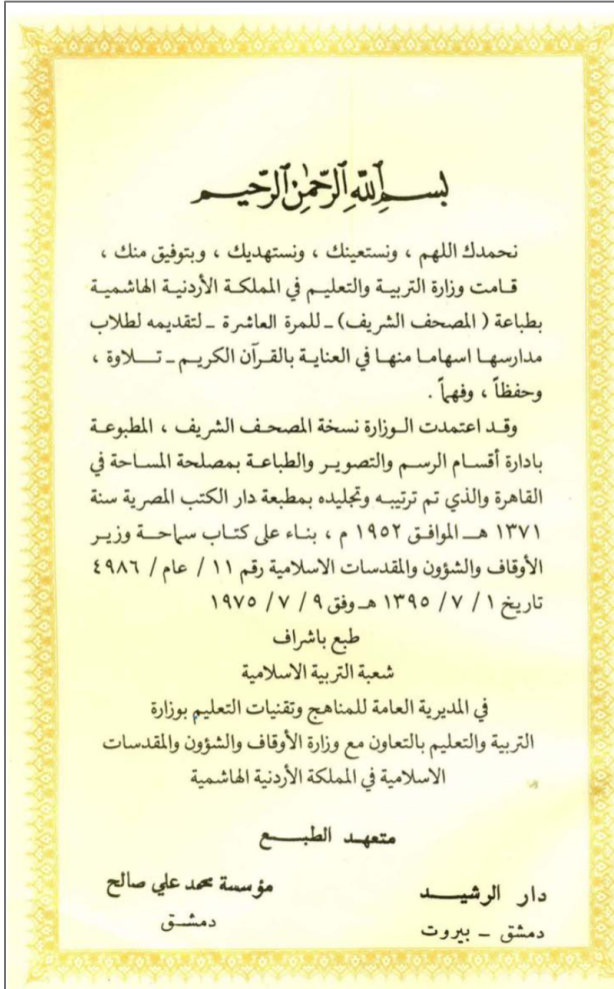 بسم الله الرحمن الرحيم
نحمدك اللهم ، ونستعينك ، ونستهديك ، وبتوفيق منك ،
قامت وزارة التربية والتعليم في المملكة الأردنية الهاشمية
بطباعة ( المصحف الشريف) ـ للمرة العاشرة ـ لتقديمه لطلاب
مدارسها اسهاما منها في العناية بالقرآن الكريم ـ تلاوة ،
وحفظاً ، وفهماً .
وقد اعتمدت الوزارة نسخة المصحف الشريف ، المطبوعة
بادارة أقسام الرسم والتصوير والطباعة بمصلحة المساحة في
القاهرة والذي تم ترتيبه وتجليده بمطبعة دار الكتب المصرية سنة
١٣٧١ هـ الموافق ١٩٥٢ م ، بناء على كتاب سماحة وزير
الأوقاف والشؤون والمقدسات الاسلامية رقم ١١ / عام / ٤٩٨٦
تاريخ ١ / ٧ / ١٣٩٥ هـ وفق ٩ / ٧ / ١٩٧٥
طبع باشراف
شعبة التربية الاسلامية
في المديرية العامة للمناهج وتقنيات التعليم بوزارة
التربية والتعليم بالتعاون مع وزارة الأوقاف والشؤون والمقدسات
الاسلامية في المملكة الأردنية الهاشمية
متعهد الطبع
دار الرشيد
دمشق ـ بيروت
مؤسسة محمد علي صالح
دمشق